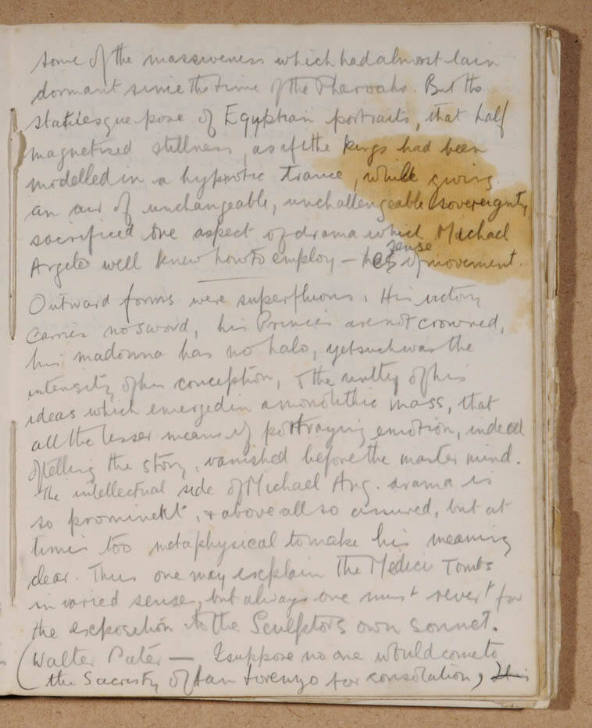 some of the massiveness which had almost lain
dormant since the time of the Pharoahs. But the
statuesque pose of Egyptian portraits, that half
magnetised stillness, as if the kings had been
modelled in a hypnotic trance, while giving
an air of unchangeable, unchallengeable sovereignty,
sacrificed the aspect of drama which Michael
Angelo well knew how to employ – his sense of movement.
Outward forms were superfluous. His victory
carries no sword, his Princes are not crowned,
his madonna has no halo, yet such was the
intensity of his conception, & the reality of his
ideas which emerged in a monolithic mass, that
all the lesser means of portraying emotion, indeed
of telling the story, vanished before the master mind.
The intellectual side of Michael Ang. drama is
so prominent, & above all so assured, but at
times too metaphysical to make his meaning
clear. Thus one may explain the Medici Tombs
in varied sense, but always one must revert for
the exposition to the Sculptors own sonnet.
(Walter Pater — I suppose no one would come to
the Sacristy of San Lorenzo for consolation, His